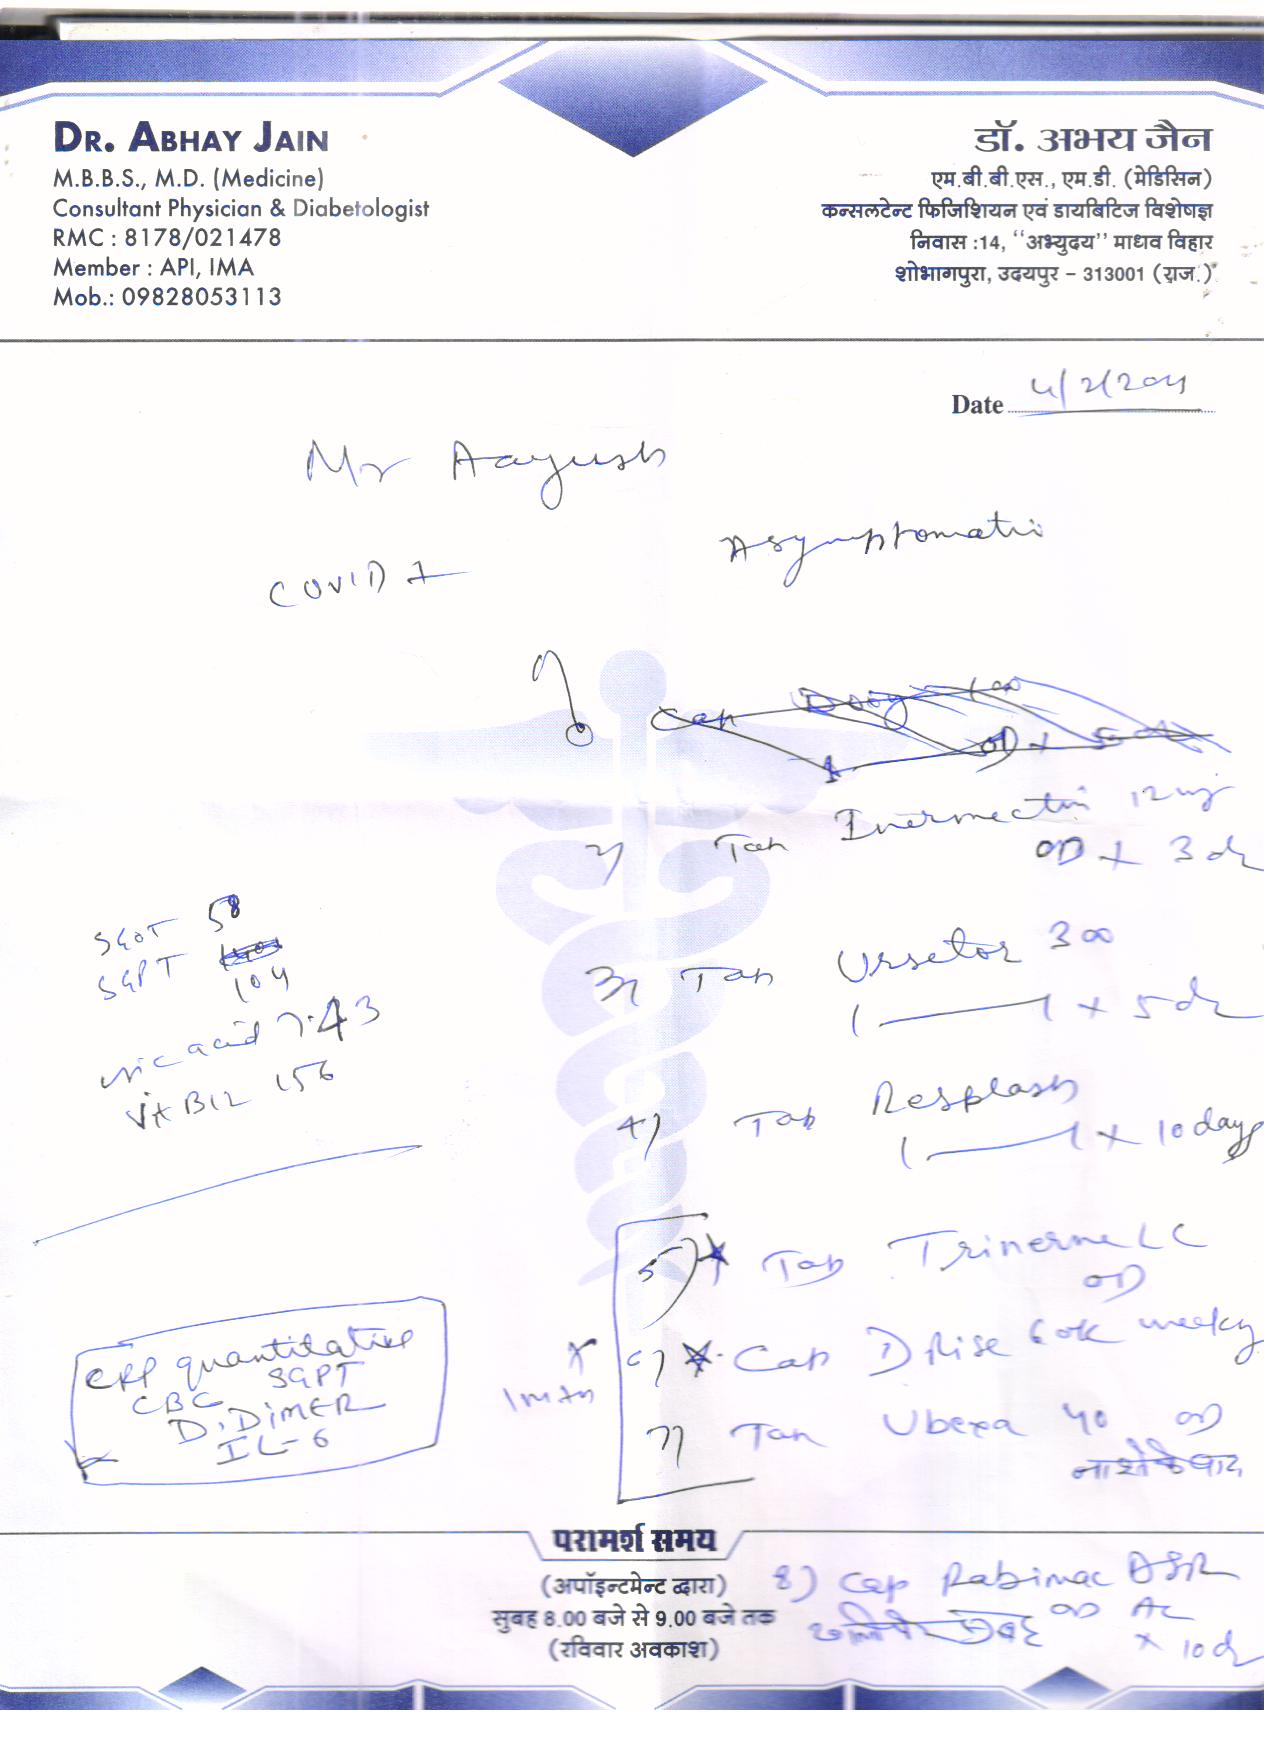 DR. ABHAY JAIN
M.B.B.S., M.D. (Medicine)
Consultant Physician & Diabetologist
RMC : 8178/021478
Member : API, IMA
Mob.: 09828053113
डॉ. अभय जैन
एम.बी.बी.एस., एम.डी. (मेडिसिन)
कन्सलटेन्ट फिजिशियन एवं डायबिटिज विशेषज्ञ
निवास :14, "अभ्युदय" माधव विहार
शोभागपुरा, उदयपुर - 313001 (राज.)
Date
Mr Aayush
Asymptomatic
COVID +
Cap Doxy 100
OD x
2) Tab Ivermectin 12 mg
OD x 3 d
SGOT 58
SGPT
104
uric acid 7.43
Vit B12 156
3) Tab Ursetor 300
1 — 1 x 5 d
4) Tab Resplash
1 — 1 x 10 days
5) Tab Trinerve LC
OD
6) Cap D Rise 60K weekly
7) Tab Ubexa 40 OD
नाश्ते के बाद
x
CRP quantitative
CBC SGPT
D. DIMER
IL-6
परामर्श समय
(अपॉइन्टमेन्ट द्वारा)
सुबह 8.00 बजे से 9.00 बजे तक
(रविवार अवकाश)
8) Cap Rabimac DSR
OD AC
x 10 d